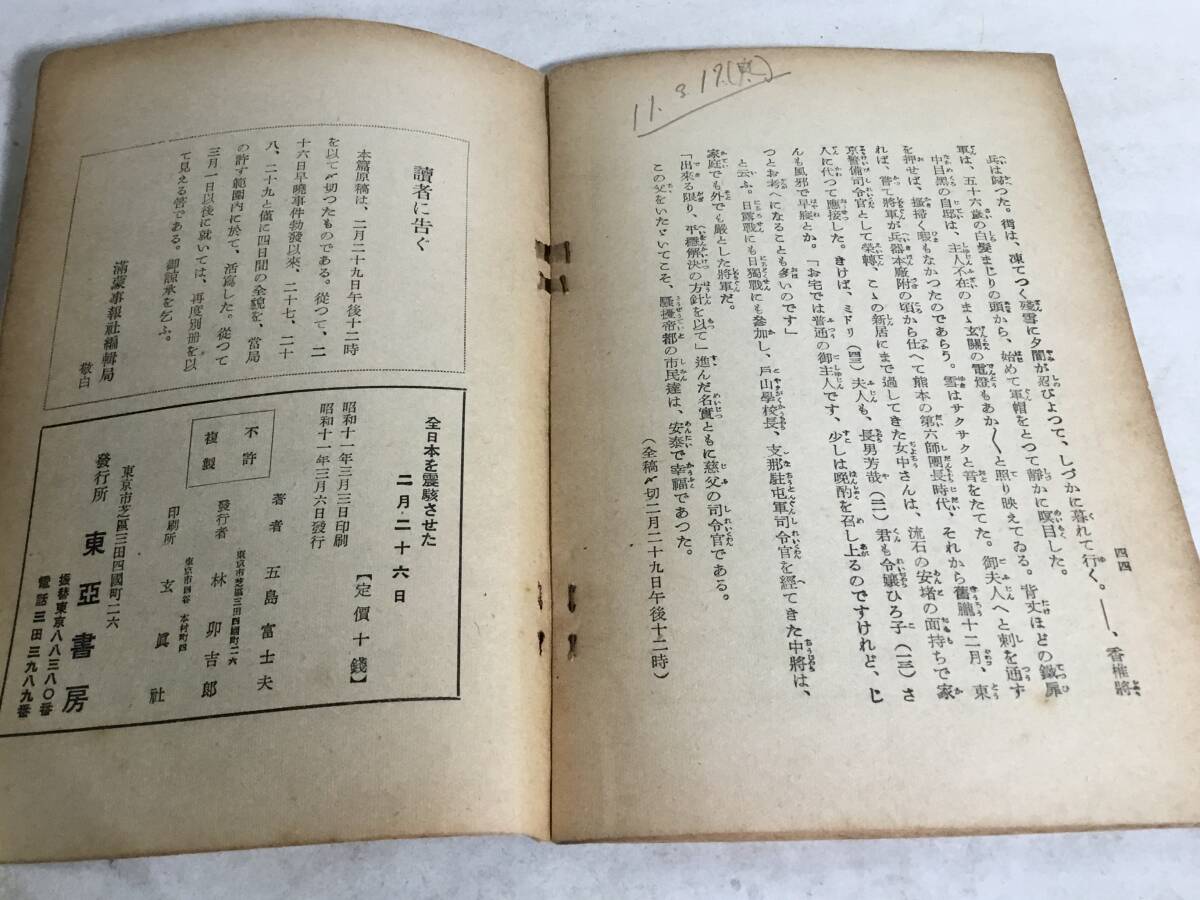 11.3.17(
四四
兵は歸つた。街は、凍てつく殘雪に夕闇が忍びよつて、しづかに暮れて行く。――、香椎將
軍は、五十六歳の白髮まじりの頭から、始めて軍帽をとつて靜かに瞑目した。
中目黑の自邸は、主人不在のまゝ玄關の電燈もあか〱と照り映えてゐる。背丈ほどの鐵扉
を押せば、掻掃く暇もなかつたのであらう。雪はサクサクと音をたてた。御夫人へと刺を通す
れば、嘗て將軍が兵器本廠附の頃から仕へて熊本の第六師團長時代、それから舊臘十二月、東
京警備司令官として榮轉、こゝの新居にまで過してきた女中さんは、流石の安堵の面持ちで家
人に代つて應接した。きけば、ミドリ(四三)夫人も、長男芳哉(二一)君も令孃ひろ子(一三)さ
んも風邪で早寢とか。「お宅では普通の御主人です、少しは晩酌を召し上るのですけれど、じ
つとお考へになることも多いのです」
と云ふ。日露戰にも日獨戰にも參加し、戸山學校長、支那駐屯軍司令官を經てきた中將は、
家庭でも外でも嚴とした將軍だ。
「出來る限り、平穩解決の方針を以て」進んだ名實ともに慈父の司令官である。
この父をいたゞいてこそ、騷擾帝都の市民達は、安泰で幸福であつた。
(全稿〆切二月二十九日午後十二時)
讀者に告ぐ
本篇原稿は、二月二十九日午後十二時
を以て〆切つたものである。從つて、二
十六日早曉事件勃發以來、二十七、二十
八、二十九と僅に四日間の全貌を、當局
の許す範圍内に於て、活寫した。從つて
三月一日以後に就いては、再度別册を以
て見える筈である。御諒承を乞ふ。
滿蒙事報社編輯局
敬白
全日本を震駭させた
二月・二十六日
昭和十一年三月三日印刷
昭和十一年三月六日發行
【定價十錢】
不許
複製
著者 五島富士夫
東京市芝區三田四國町二六
發行者 林卯吉郎
東京市四谷 本村町四
印刷所 玄眞社
東京市芝區三田四國町二六
發行所 東亞書房
振替東京八三八〇番
電話三田三九八九番